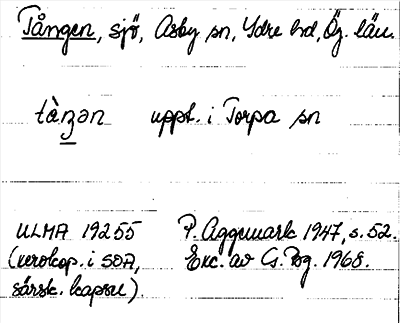 Tången, sjö, Asby sn, Ydre hd, Ög. län.
tàŋən uppt. i Torpa sn
ULMA 19255 P. Aggemark 1947, s. 52.
(xerokop. i SOA, Exc. av G. Bg. 1968.
särsk. kapsel).